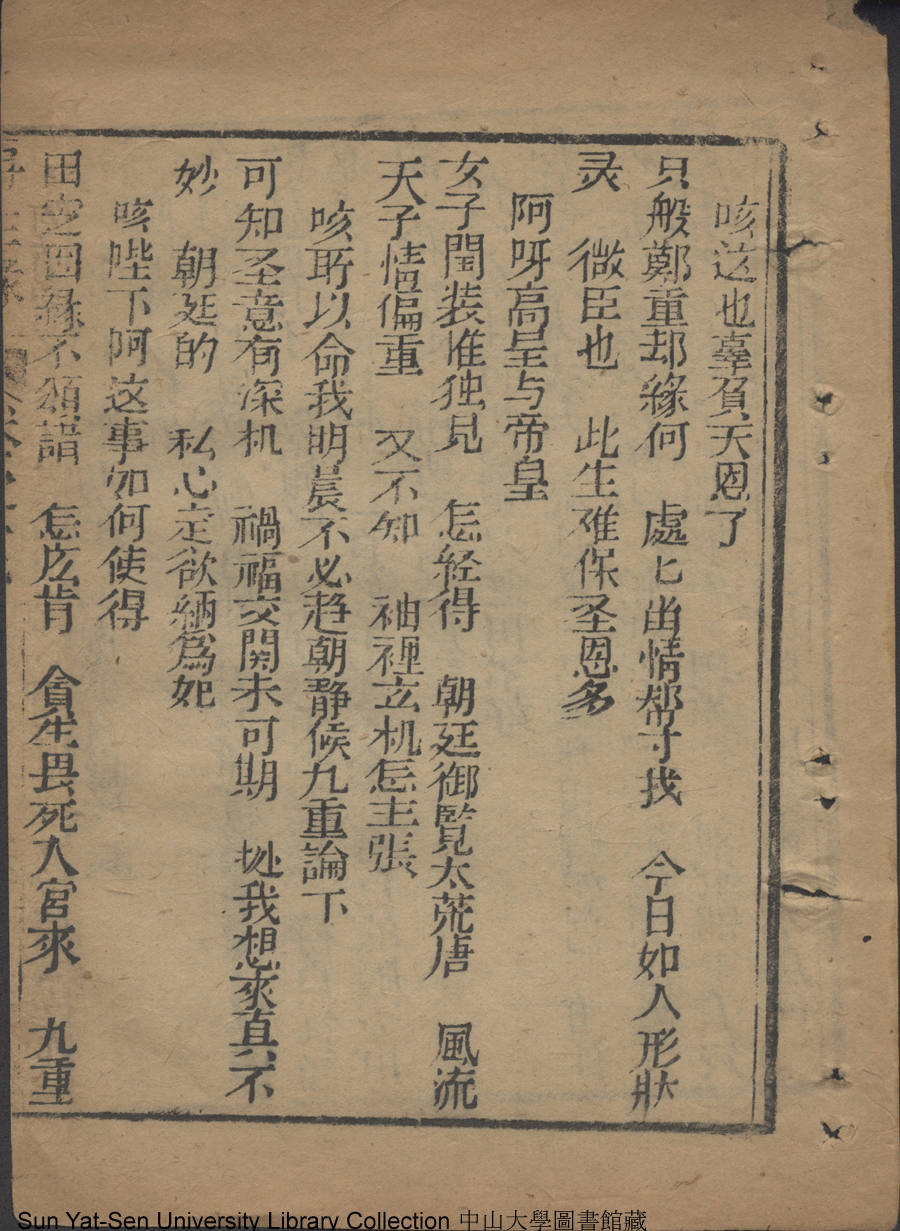 咳这也辜負天恩了
只般鄭重却緣何　處匕幽情都寸找　今日如人形狀
灵　微臣也　此生难保圣恩多
阿呀高皇与帝皇
女子閨装惟独見　怎経得　朝廷御覧太荒唐　風流
天子情偏重　又不知　袖裡玄机怎主張
咳所以命我明晨不必趋朝静候九重諭下
可知圣意有深机　禍福交関未可期　拠我想來真不
妙　朝廷的　私心定欲納爲妃
咳陛下阿这事如何使得
田空因緣不頌諧　怎庅肯　貪生畏死入宮來　九重
Sun Yat-Sen University Library Collection 中山大學圖書館藏